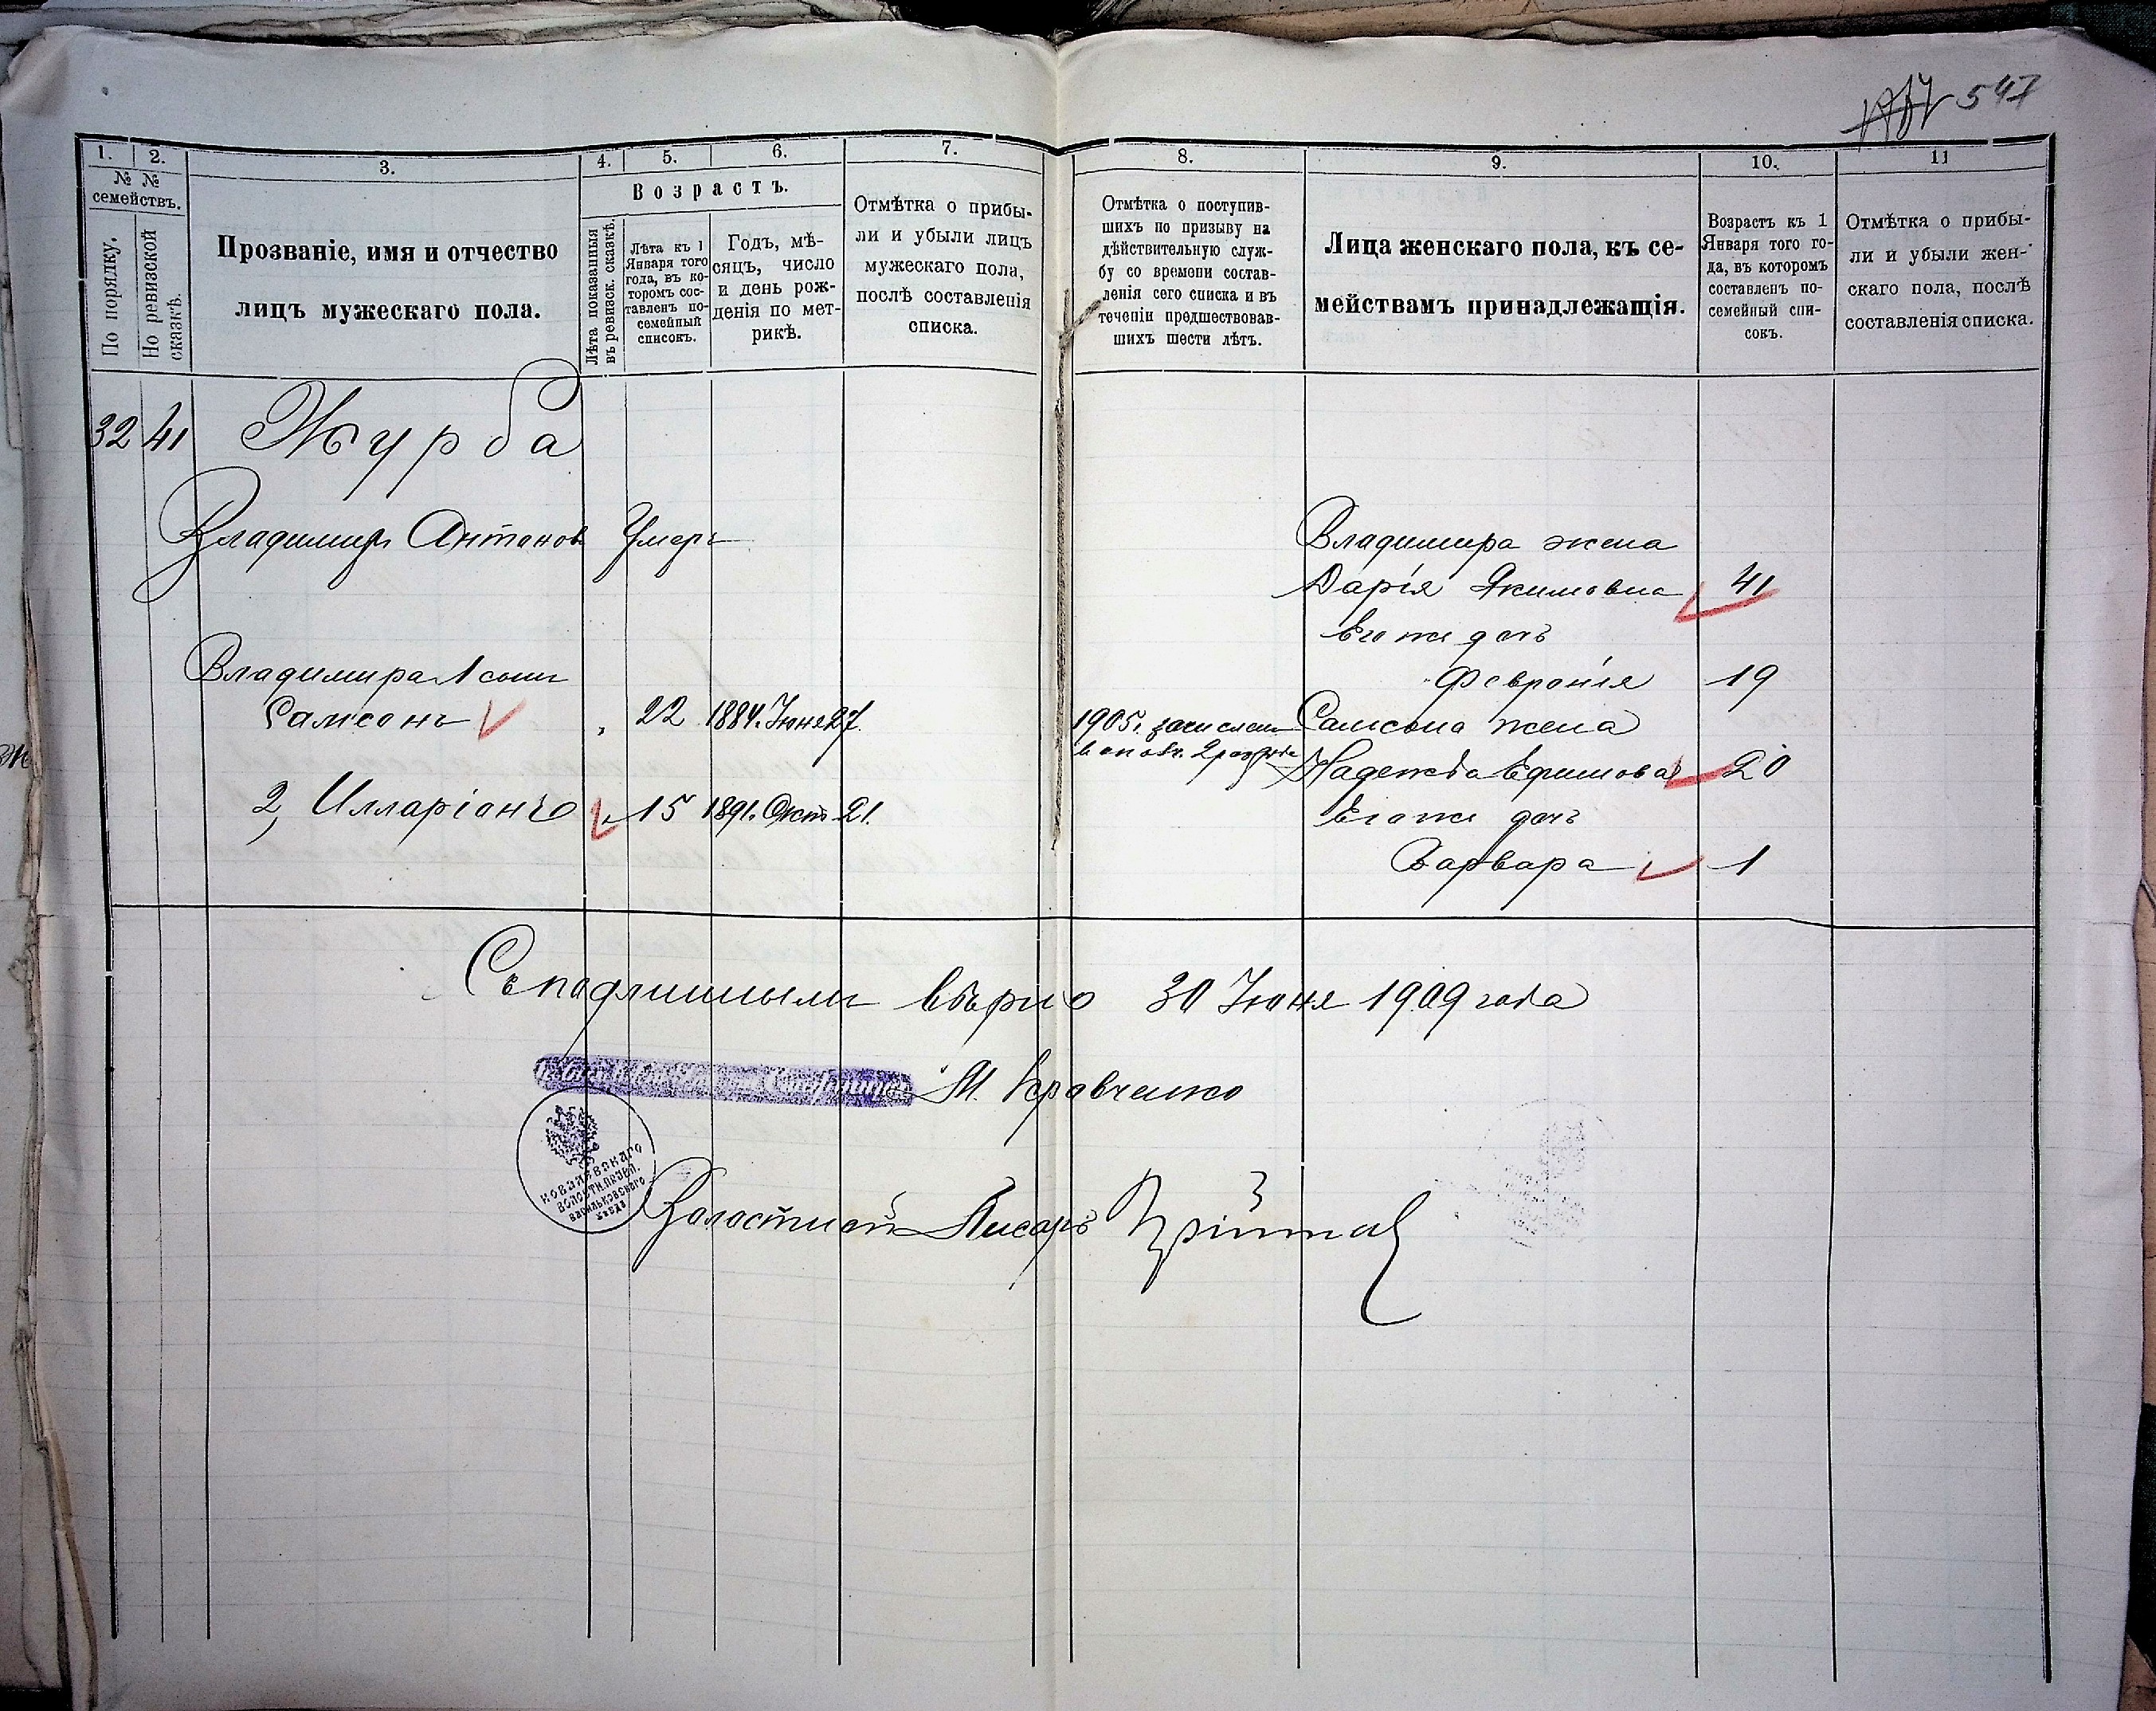 547
1.
2.
3.
4.
5.
6.
7.
8.
9.
10.
11
№ №
семействъ.
По порядку.
Но ревизской
сказкѣ.
Прозваніе, имя и отчество
лицъ мужескаго пола.
Лѣта показанныя
въ ревизск. сказкѣ.
Возрастъ.
Лѣта къ 1
Января того
года, въ ко-
торомъ сос-
тавленъ по-
семейный
списокъ.
Годъ, мѣ-
сяцъ, число
и день рож-
денія по мет-
рикѣ.
Отмѣтка о прибы-
ли и убыли лицъ
мужескаго пола,
послѣ составленія
списка.
Отмѣтка о поступив-
шихъ по призыву на
дѣйствительную служ-
бу со времени состав-
ленія сего списка и въ
теченіи предшествовав-
шихъ шести лѣтъ.
Лица женскаго пола, къ се-
мействамъ принадлежащія.
Возрастъ къ 1
Января того го-
да, въ которомъ
составленъ по-
семейный спи-
сокъ.
Отмѣтка о прибы-
ли и убыли жен-
скаго пола, послѣ
составленія списка.
32 41 Журба
Владимиръ Антоновъ Умеръ
Владимира жена
Дарія Якимовна 41
Его же дочь
Февронія 19
Владимира 1 сынъ
Самсонъ 22 1884. Іюня 27.
1905 г. зачисленъ
в ополч. 2 разряда
Самсона жена
Надежда Ефимова 20
2, Илларіонъ 15 1891. Окт. 21.
Его же дочь
Варвара 1
Съ подлиннымъ вѣрно 30 Іюня 1909 года
М. Кравченко
Ковалевскаго
волостн. правл.
Васильковскаго
уѣзда
Волостной Писарь